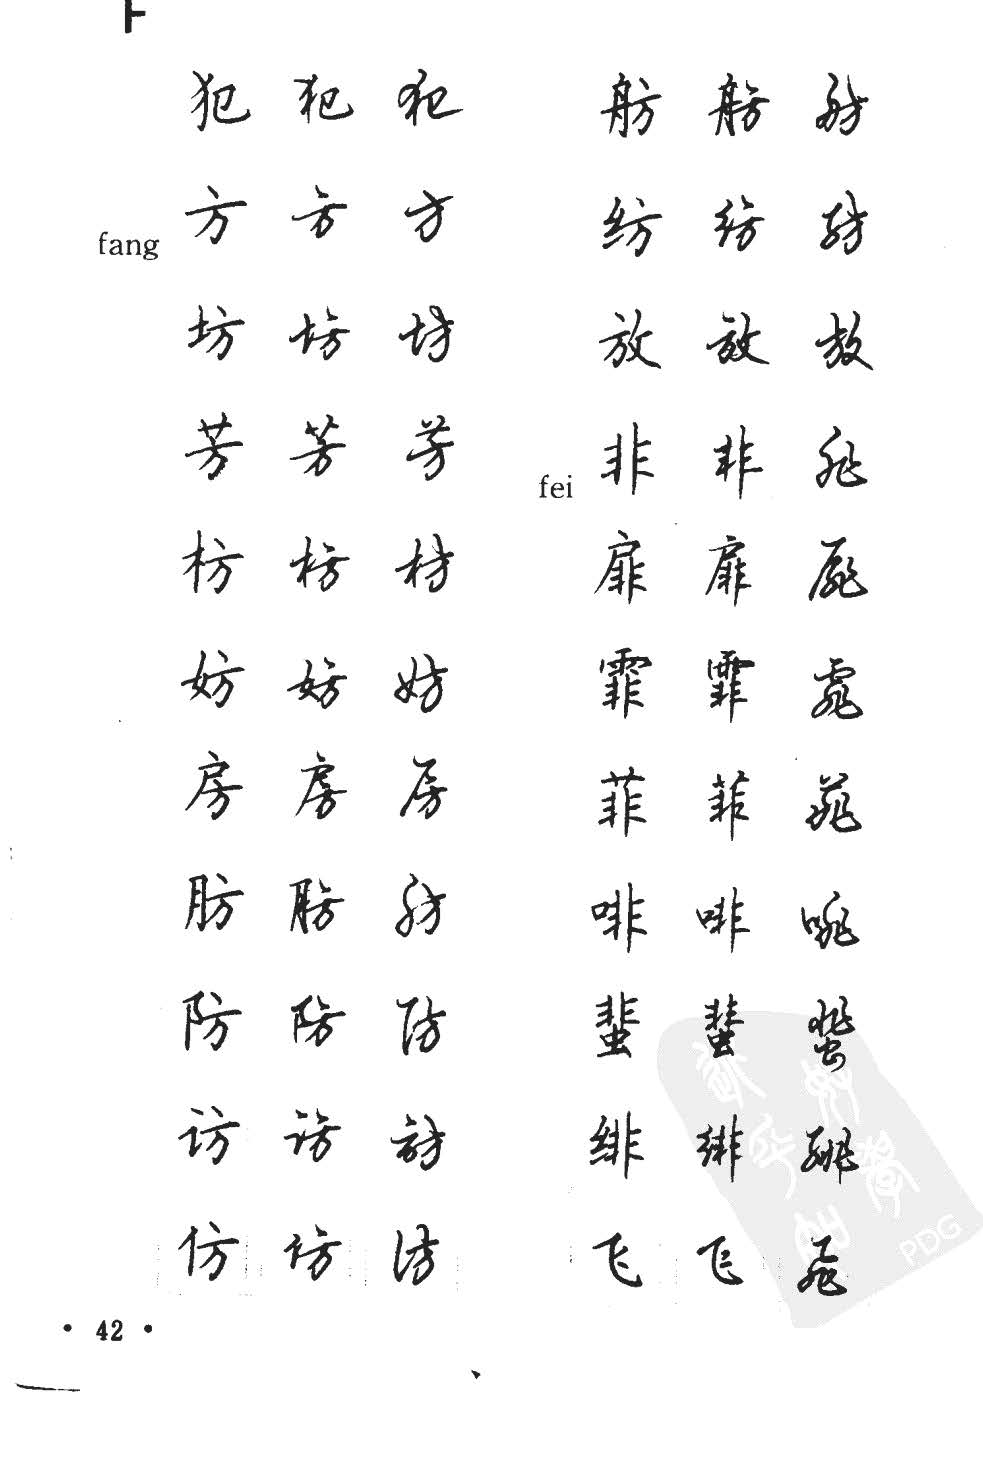 F
犯 犯 犯
fang
方 方 方
坊 坊 坊
芳 芳 芳
枋 枋 枋
妨 妨 妨
房 房 房
肪 肪 肪
防 防 防
访 访 访
仿 仿 仿
舫 舫 舫
纺 纺 纺
放 放 放
fei
非 非 非
扉 扉 扉
霏 霏 霏
菲 菲 菲
啡 啡 啡
蜚 蜚 蜚
绯 绯 绯
飞 飞 飞
PDG
• 42 •